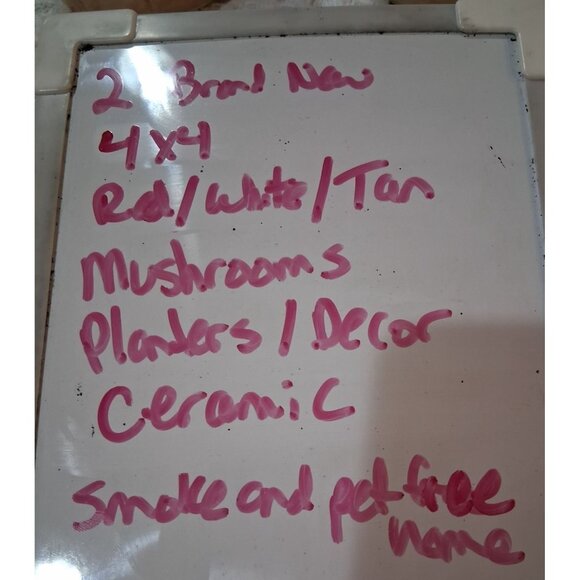 2 Brand New
4x4
Red/White/Tan
Mushrooms
Planters/Decor
Ceramic
Smoke and pet free
home